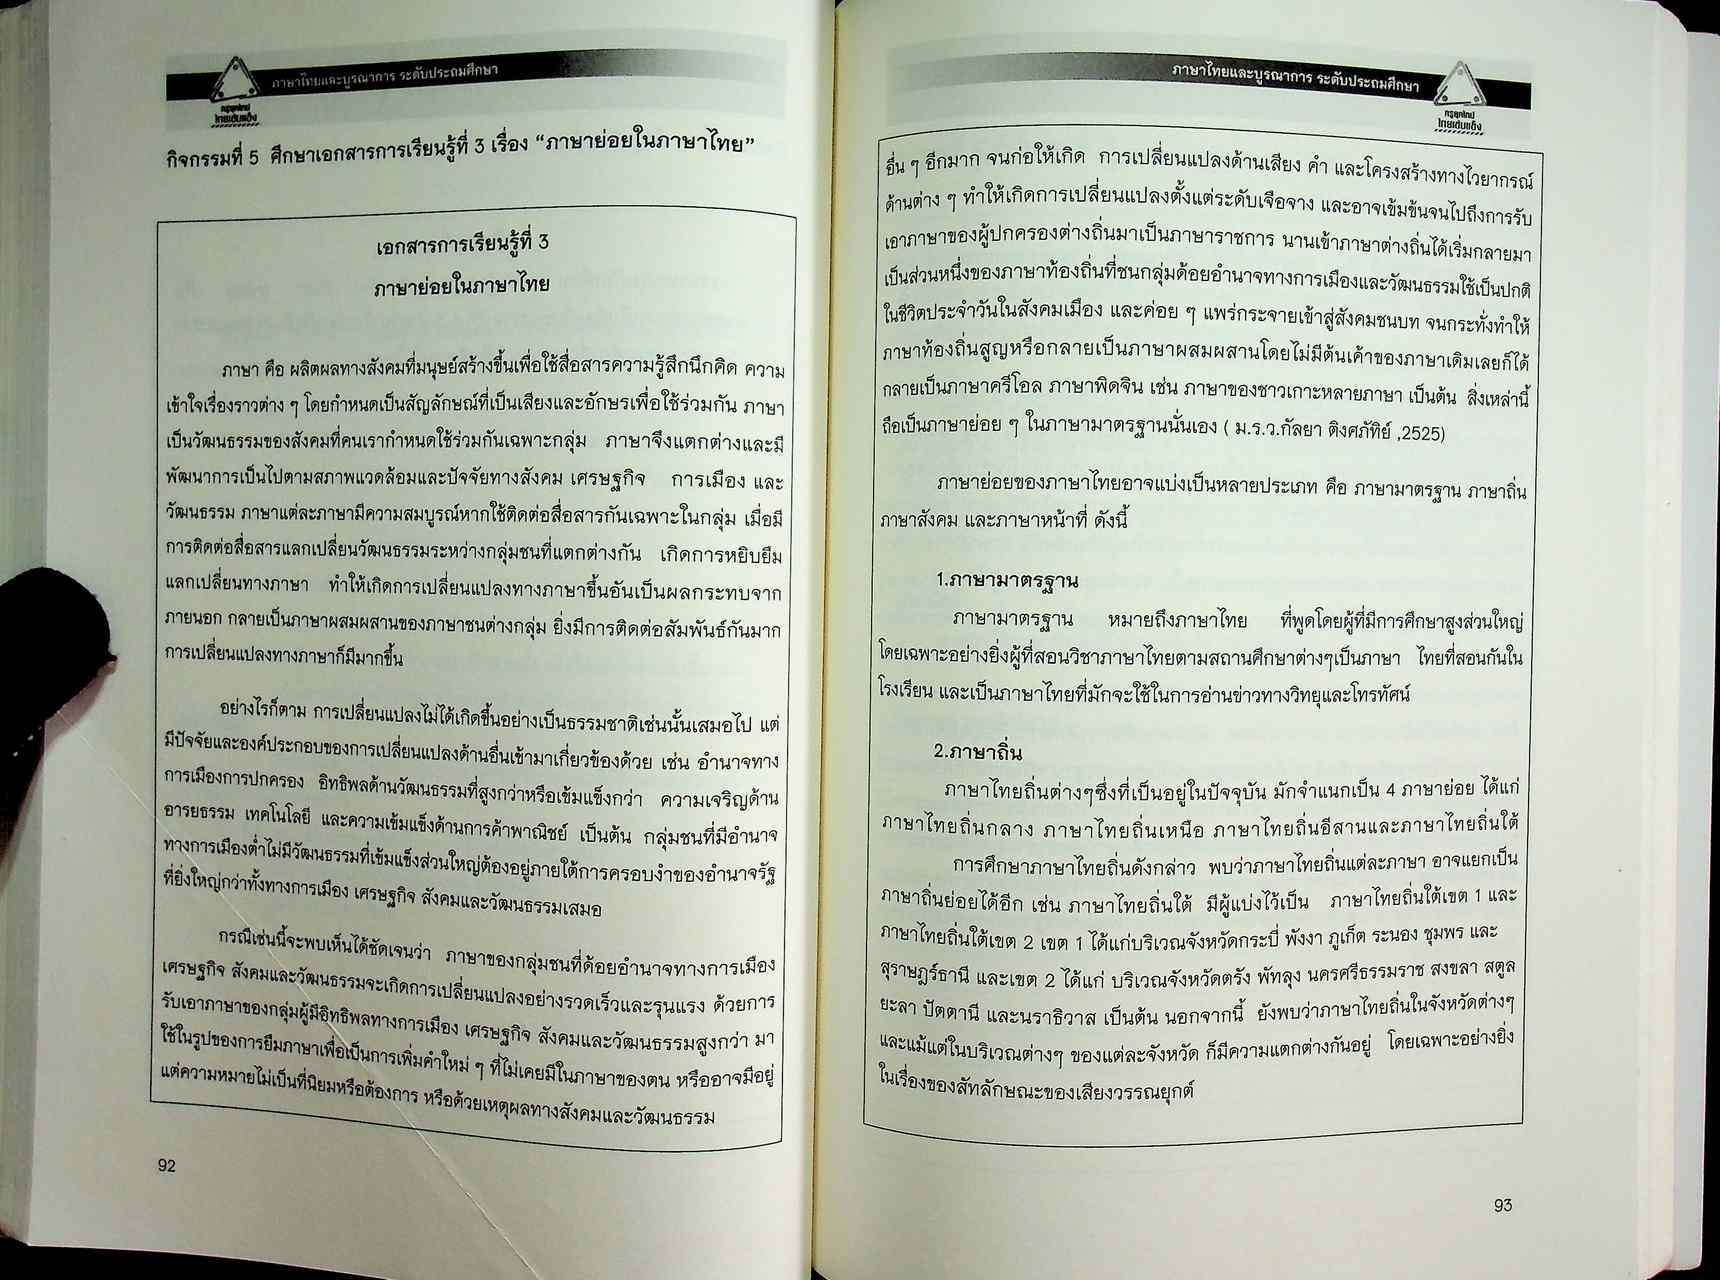 ภาษาไทยและบูรณาการ ระดับประถมศึกษา
ครูยุคใหม่
ไทยเข้มแข็ง
กิจกรรมที่ 5 ศึกษาเอกสารการเรียนรู้ที่ 3 เรื่อง “ภาษาย่อยในภาษาไทย”
เอกสารการเรียนรู้ที่ 3
ภาษาย่อยในภาษาไทย
ภาษา คือ ผลิตผลทางสังคมที่มนุษย์สร้างขึ้นเพื่อใช้สื่อสารความรู้สึกนึกคิด ความ
เข้าใจเรื่องราวต่าง ๆ โดยกำหนดเป็นสัญลักษณ์ที่เป็นเสียงและอักษรเพื่อใช้ร่วมกัน ภาษา
เป็นวัฒนธรรมของสังคมที่คนเรากำหนดใช้ร่วมกันเฉพาะกลุ่ม ภาษาจึงแตกต่างและมี
พัฒนาการเป็นไปตามสภาพแวดล้อมและปัจจัยทางสังคม เศรษฐกิจ การเมือง และ
วัฒนธรรม ภาษาแต่ละภาษามีความสมบูรณ์หากใช้ติดต่อสื่อสารกันเฉพาะในกลุ่ม เมื่อมี
การติดต่อสื่อสารแลกเปลี่ยนวัฒนธรรมระหว่างกลุ่มชนที่แตกต่างกัน เกิดการหยิบยืม
แลกเปลี่ยนทางภาษา ทำให้เกิดการเปลี่ยนแปลงทางภาษาขึ้นอันเป็นผลกระทบจาก
ภายนอก กลายเป็นภาษาผสมผสานของภาษาชนต่างกลุ่ม ยิ่งมีการติดต่อสัมพันธ์กันมาก
การเปลี่ยนแปลงทางภาษาก็มีมากขึ้น
อย่างไรก็ตาม การเปลี่ยนแปลงไม่ได้เกิดขึ้นอย่างเป็นธรรมชาติเช่นนั้นเสมอไป แต่
มีปัจจัยและองค์ประกอบของการเปลี่ยนแปลงด้านอื่นเข้ามาเกี่ยวข้องด้วย เช่น อำนาจทาง
การเมืองการปกครอง อิทธิพลด้านวัฒนธรรมที่สูงกว่าหรือเข้มแข็งกว่า ความเจริญด้าน
อารยธรรม เทคโนโลยี และความเข้มแข็งด้านการค้าพาณิชย์ เป็นต้น กลุ่มชนที่มีอำนาจ
ทางการเมืองต่ำไม่มีวัฒนธรรมที่เข้มแข็งส่วนใหญ่ต้องอยู่ภายใต้การครอบงำของอำนาจรัฐ
ที่ยิ่งใหญ่กว่าทั้งทางการเมือง เศรษฐกิจ สังคมและวัฒนธรรมเสมอ
กรณีเช่นนี้จะพบเห็นได้ชัดเจนว่า ภาษาของกลุ่มชนที่ด้อยอำนาจทางการเมือง
เศรษฐกิจ สังคมและวัฒนธรรมจะเกิดการเปลี่ยนแปลงอย่างรวดเร็วและรุนแรง ด้วยการ
รับเอาภาษาของกลุ่มผู้มีอิทธิพลทางการเมือง เศรษฐกิจ สังคมและวัฒนธรรมสูงกว่า มา
ใช้ในรูปของการยืมภาษาเพื่อเป็นการเพิ่มคำใหม่ ๆ ที่ไม่เคยมีในภาษาของตน หรืออาจมีอยู่
แต่ความหมายไม่เป็นที่นิยมหรือต้องการ หรือด้วยเหตุผลทางสังคมและวัฒนธรรม
92
ภาษาไทยและบูรณาการ ระดับประถมศึกษา
ครูยุคใหม่
ไทยเข้มแข็ง
อื่น ๆ อีกมาก จนก่อให้เกิด การเปลี่ยนแปลงด้านเสียง คำ และโครงสร้างทางไวยากรณ์
ด้านต่าง ๆ ทำให้เกิดการเปลี่ยนแปลงตั้งแต่ระดับเจือจาง และอาจเข้มข้นจนไปถึงการรับ
เอาภาษาของผู้ปกครองต่างถิ่นมาเป็นภาษาราชการ นานเข้าภาษาต่างถิ่นได้เริ่มกลายมา
เป็นส่วนหนึ่งของภาษาท้องถิ่นที่ชนกลุ่มด้อยอำนาจทางการเมืองและวัฒนธรรมใช้เป็นปกติ
ในชีวิตประจำวันในสังคมเมือง และค่อย ๆ แพร่กระจายเข้าสู่สังคมชนบท จนกระทั่งทำให้
ภาษาท้องถิ่นสูญหรือกลายเป็นภาษาผสมผสานโดยไม่มีต้นเค้าของภาษาเดิมเลยก็ได้
กลายเป็นภาษาครีโอล ภาษาพิดจิน เช่น ภาษาของชาวเกาะหลายภาษา เป็นต้น สิ่งเหล่านี้
ถือเป็นภาษาย่อย ๆ ในภาษามาตรฐานนั่นเอง ( ม.ร.ว.กัลยา ติงศภัทิย์ ,2525)
ภาษาย่อยของภาษาไทยอาจแบ่งเป็นหลายประเภท คือ ภาษามาตรฐาน ภาษาถิ่น
ภาษาสังคม และภาษาหน้าที่ ดังนี้
1.ภาษามาตรฐาน
ภาษามาตรฐาน หมายถึงภาษาไทย ที่พูดโดยผู้ที่มีการศึกษาสูงส่วนใหญ่
โดยเฉพาะอย่างยิ่งผู้ที่สอนวิชาภาษาไทยตามสถานศึกษาต่างๆเป็นภาษา ไทยที่สอนกันใน
โรงเรียน และเป็นภาษาไทยที่มักจะใช้ในการอ่านข่าวทางวิทยุและโทรทัศน์
2.ภาษาถิ่น
ภาษาไทยถิ่นต่างๆซึ่งที่เป็นอยู่ในปัจจุบัน มักจำแนกเป็น 4 ภาษาย่อย ได้แก่
ภาษาไทยถิ่นกลาง ภาษาไทยถิ่นเหนือ ภาษาไทยถิ่นอีสานและภาษาไทยถิ่นใต้
การศึกษาภาษาไทยถิ่นดังกล่าว พบว่าภาษาไทยถิ่นแต่ละภาษา อาจแยกเป็น
ภาษาถิ่นย่อยได้อีก เช่น ภาษาไทยถิ่นใต้ มีผู้แบ่งไว้เป็น ภาษาไทยถิ่นใต้เขต 1 และ
ภาษาไทยถิ่นใต้เขต 2 เขต 1 ได้แก่บริเวณจังหวัดกระบี่ พังงา ภูเก็ต ระนอง ชุมพร และ
สุราษฎร์ธานี และเขต 2 ได้แก่ บริเวณจังหวัดตรัง พัทลุง นครศรีธรรมราช สงขลา สตูล
ยะลา ปัตตานี และนราธิวาส เป็นต้น นอกจากนี้ ยังพบว่าภาษาไทยถิ่นในจังหวัดต่างๆ
และแม้แต่ในบริเวณต่างๆ ของแต่ละจังหวัด ก็มีความแตกต่างกันอยู่ โดยเฉพาะอย่างยิ่ง
ในเรื่องของสัทลักษณะของเสียงวรรณยุกต์
93